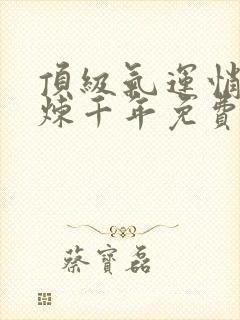 頂級氣運悄
煉千年免費
蔡寶磊